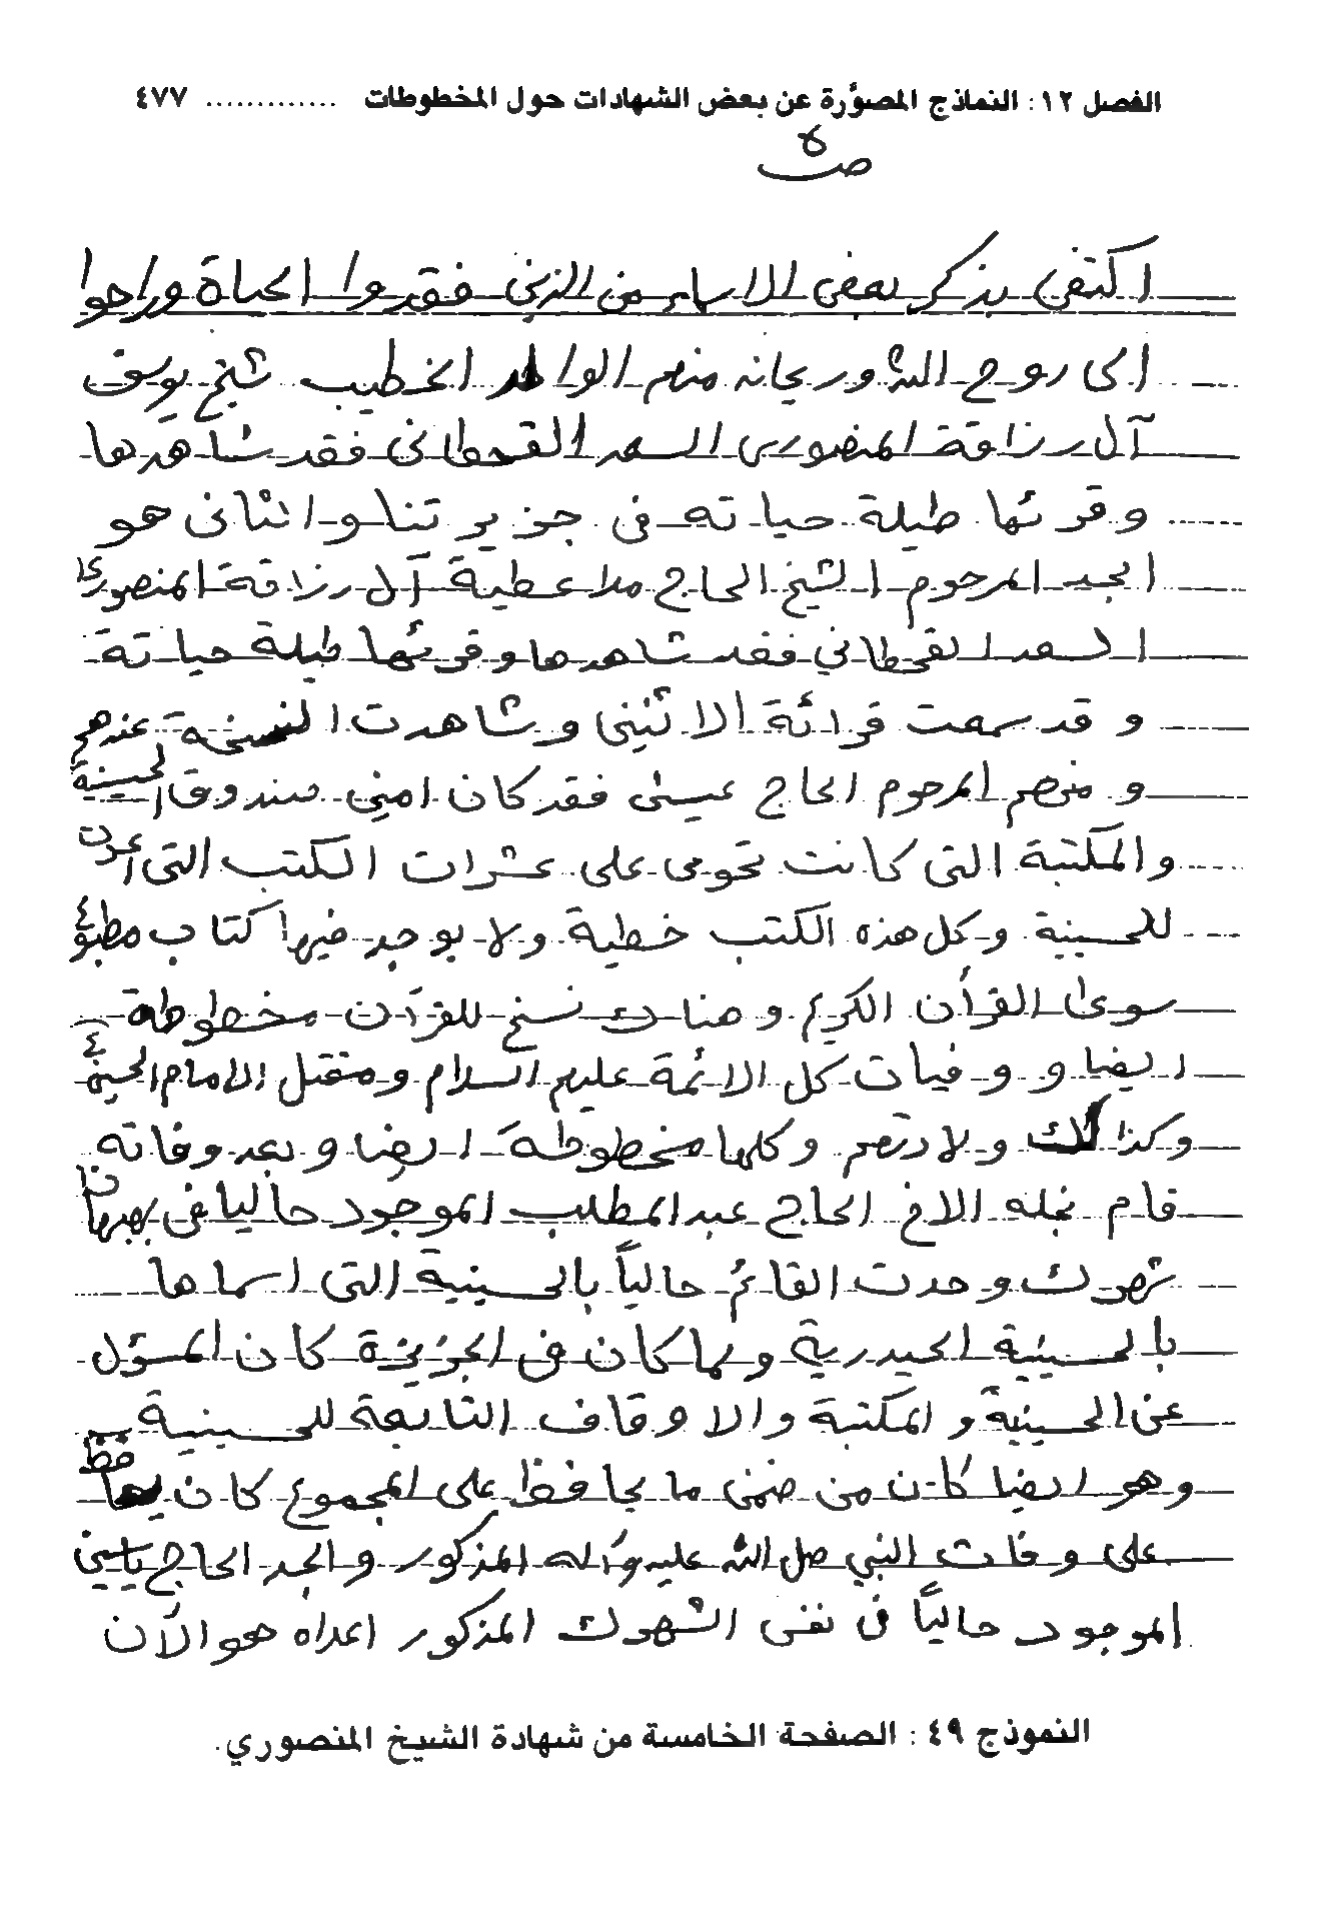 الفصل ١٢: النماذج المصوَّرة عن بعض الشهادات حول المخطوطات ............. ٤٧٧
ص٥
اكتفى بذكر بعض الاسماء من الذين فقدوا الحياة وراحوا
الى روح الله وريحانه منهم الوالد الخطيب شيخ يوسف
آل رزاقة المنصوري السعد القحطاني فقد شاهدها
وقرئها طيلة حياته في جزيرتنا والثاني هو
الجد المرحوم الشيخ الحاج ملا عطية آل رزاقة المنصوري
السعد القحطاني فقد شاهدها وقرئها طيلة حياتة
وقد سمعت قرائة الاثنين وشاهدت النسخة عندهم
ومنهم المرحوم الحاج عيسى فقد كان امين صندوق الحسينية
والمكتبة التى كانت تحوى على عشرات الكتب التى اعدت
للحسينية وكل هذه الكتب خطية ولا يوجد فيها كتاب مطبوع
سوى القرأن الكريم وهناك نسخ للقرآن مخطوطة
ايضا و وفيات كل الائمة عليهم السلام ومقتل الامام الحسين ع
وكذالك ولادتهم وكلها مخطوطة ايضا وبعد وفاته
قام نجله الاخ الحاج عبد المطلب الموجود حاليا في بهبهان
شهرك وحدت القائم حالياً بالحسينية التى اسماها
بالحسينية الحيدرية ولما كان في الجزيرة كان المسؤل
عن الحسينية والمكتبة والاوقاف التابعة للحسينية
وهو ايضا كان من ضمن ما يحافظ على المجموع كان يحافظ
على وفات النبي صل الله عليه وآله المذكور والجد الحاج ياسين
الموجود حالياً في نفس الشهرك المذكور اعداه هو الآن
النموذج ٤٩: الصفحة الخامسة من شهادة الشيخ المنصوري.